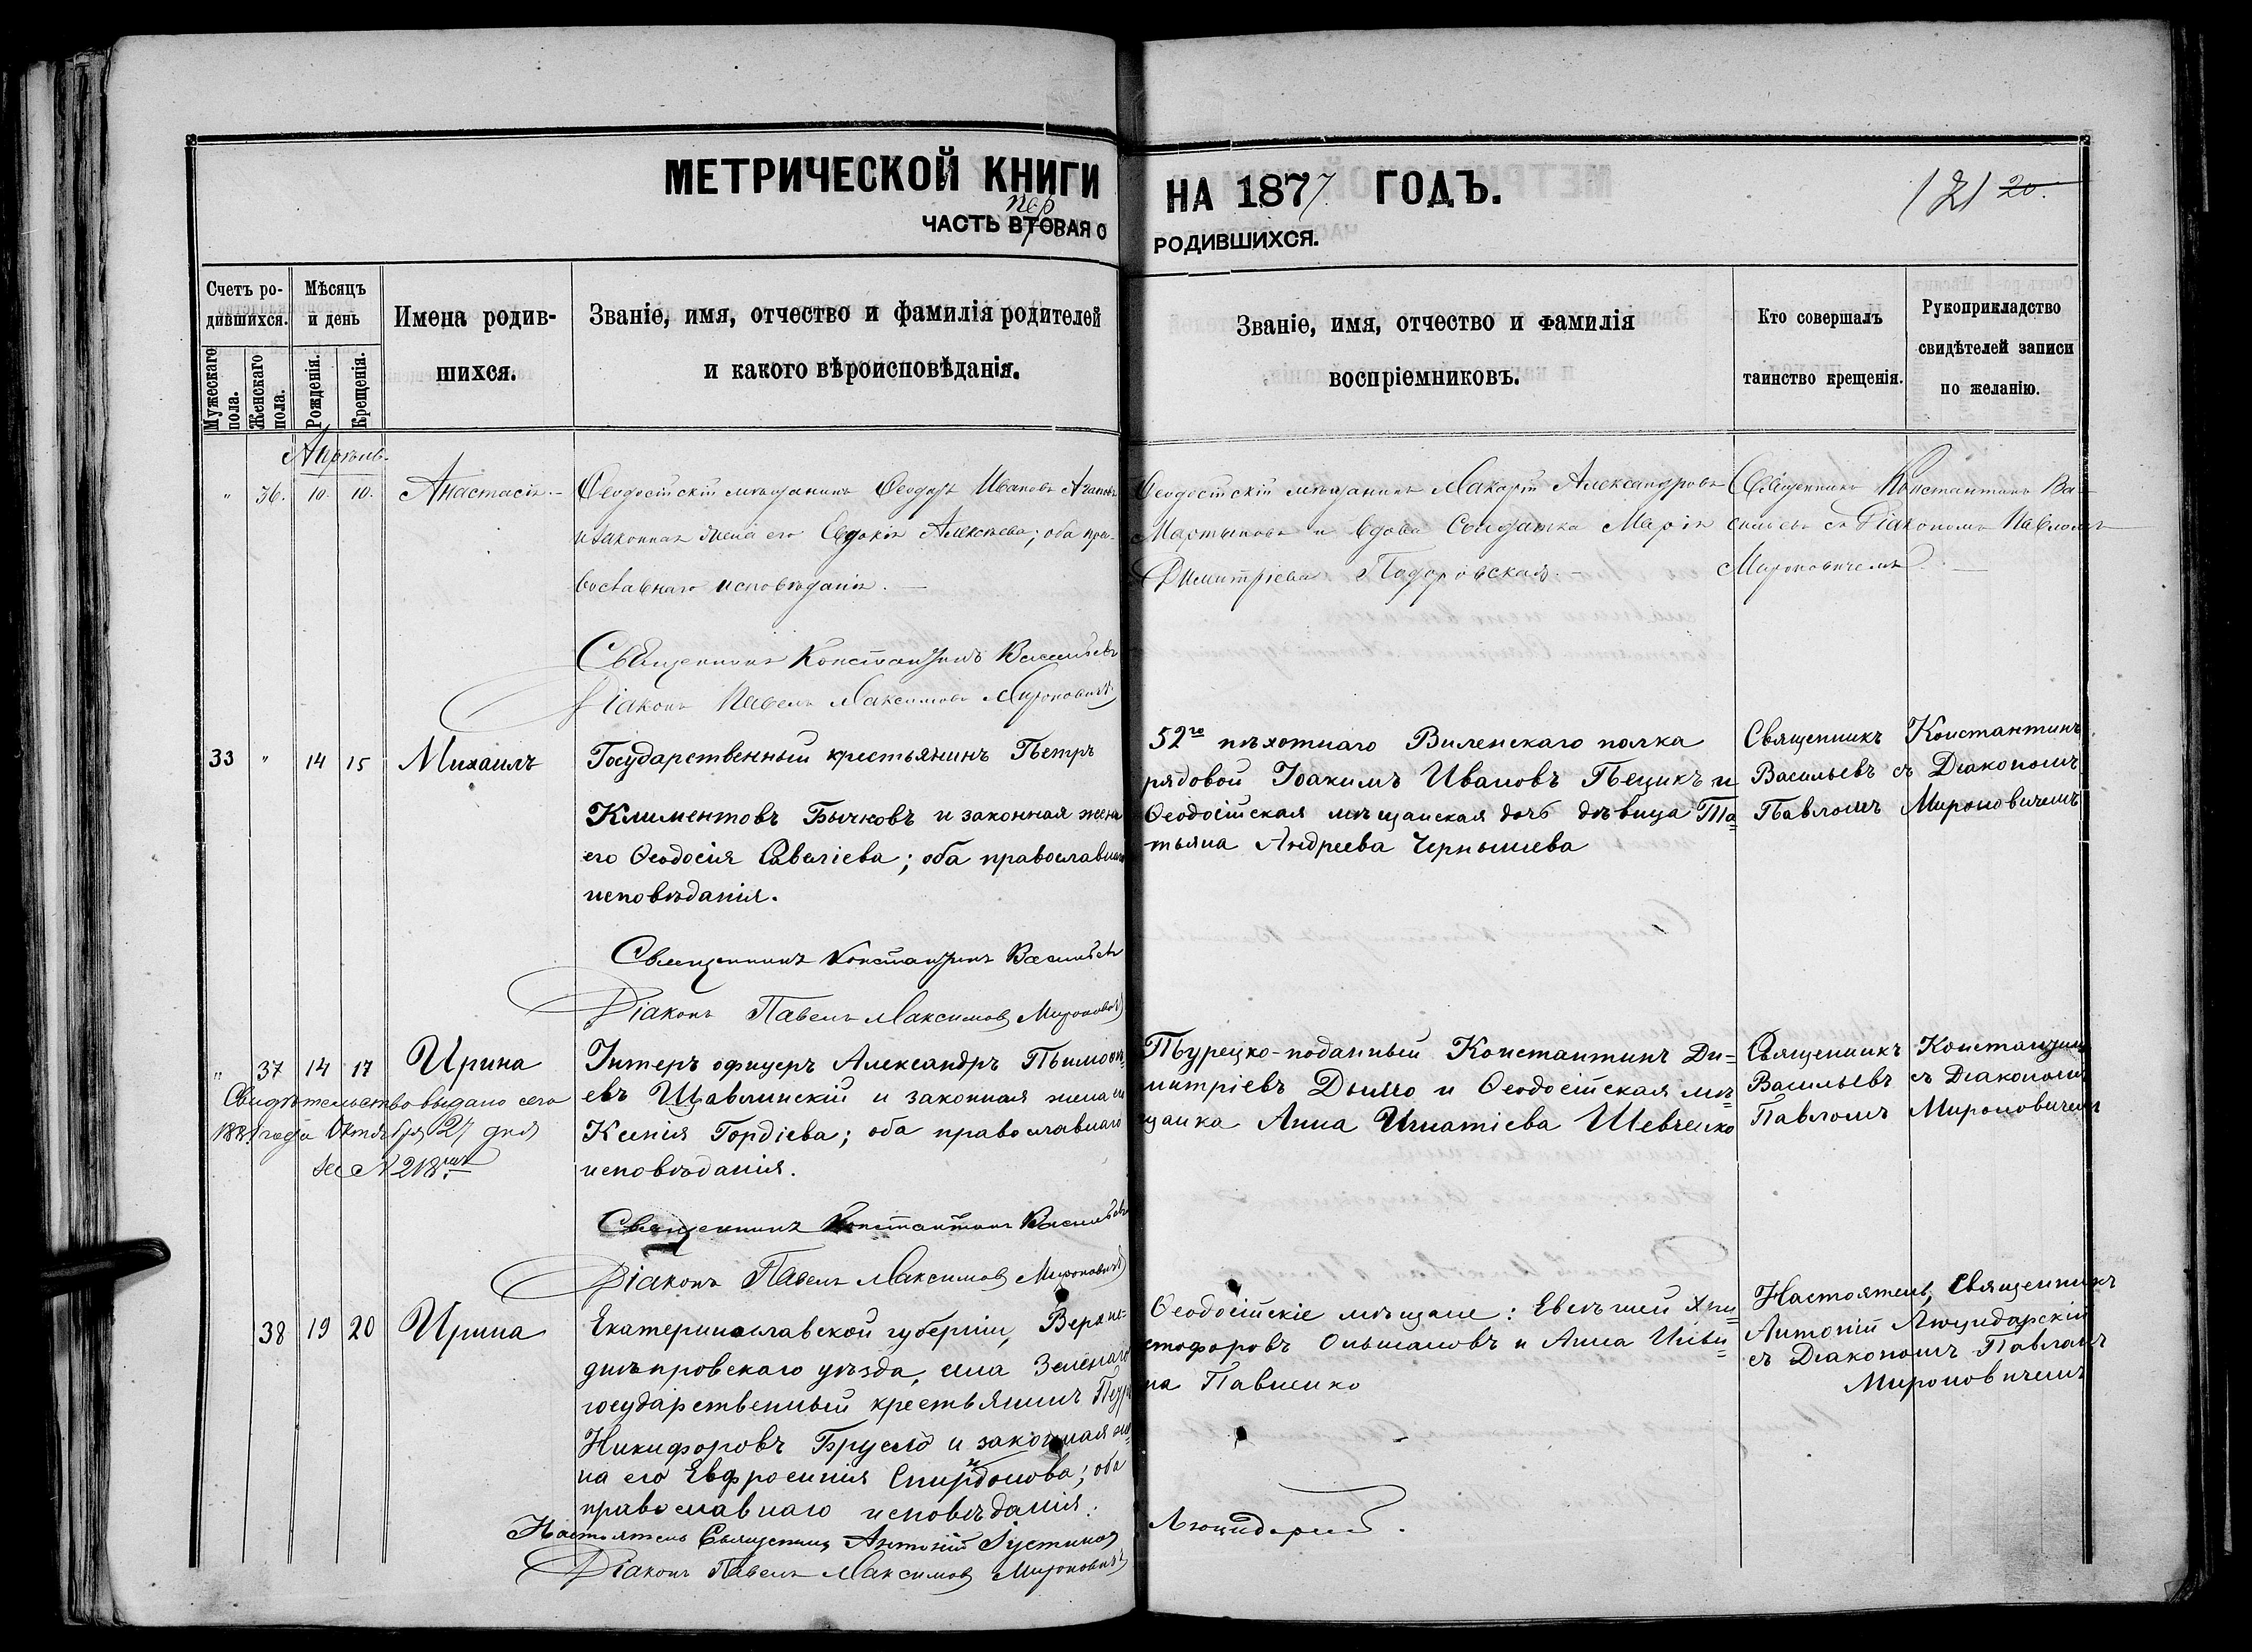 МЕТРИЧЕСКОЙ КНИГИ НА 1877 ГОДЪ.
121 20.
ЧАСТЬ ВТОРАЯ О РОДИВШИХСЯ.
пер
Счетъ родившихся.
Мужескаго пола.
Женскаго пола.
Мѣсяцъ и день
Рожденія.
Крещенія.
Имена родившихся.
Званіе, имя, отчество и фамилія родителей
и какого вѣроисповѣданія.
Званіе, имя, отчество и фамилія
воспріемниковъ.
Кто совершалъ
таинство крещенія.
Рукоприкладство
свидѣтелей записи
по желанію.
Апрѣль.
" 36. 10. 10. Анастасія.
Ѳеодосійскій мѣщанинъ Ѳеодоръ Ивановъ
и законная жена его Евдокія Алексѣева; оба пра-
вославнаго исповѣданія.
Священникъ Константинъ Васильевъ
Діаконъ Павелъ Максимовъ Мироновичъ
Ѳеодосійскій мѣщанинъ Макарій Александровъ
Мартыновъ и вдова Солдатка Марія
Димитріева
Священникъ Константинъ Ва-
сильевъ съ Діакономъ Павломъ
Мироновичемъ.
33 " 14 15 Михаилъ
Государственный крестьянинъ Петръ
Климентовъ Бычковъ и законная жена
его Ѳеодосія Саватіева; оба православнаго
исповѣданія.
Священникъ Константинъ Васильевъ
Діаконъ Павелъ Максимовъ Мироновичъ
52го пѣхотнаго Виленскаго полка
рядовой Іоакимъ Ивановъ Пецикъ и
Ѳеодосійская мѣщанская дочь дѣвица Та=
тьяна Андреева Чернышева
Священникъ Константинъ
Васильевъ съ Діакономъ
Павломъ Мироновичемъ
" 37 14 17 Ирина
Свидѣтельство выдано сего
года Октября 27 дня
за № 218
Унтеръ офицеръ Александръ Тимоѳе
евъ Щавлинскій и законная жена его
Ксенія Гордіева; оба православнаго
исповѣданія.
Священникъ Константинъ Васильевъ
Діаконъ Павелъ Максимовъ Мироновичъ
Турецко-подданный Константинъ Ди=
митріевъ Дымо и Ѳеодосійская мѣ=
щанка Анна Игнатіева Шевченко
Священникъ Константинъ
Васильевъ съ Діакономъ
Павломъ Мироновичемъ
38 19 20 Ирина
Екатеринославской губерніи, Верхне=
днѣпровскаго уѣзда, села Зеленаго
государственный крестьянинъ Петръ
Никифоровъ Брусло и законная же=
на его Евфросинія Спиридонова; оба
православнаго исповѣданія.
Настоятель Священникъ Антоній Іустиновъ Люцидарскій.
Діаконъ Павелъ Максимовъ Мироновичъ
Ѳеодосійскіе мѣщане: Евсѣгней Хри=
стофоровъ Ольшановъ и Анна
на Павленко
Настоятель, Священникъ
Антоній Люцидарскій
съ Діакономъ Павломъ
Мироновичемъ